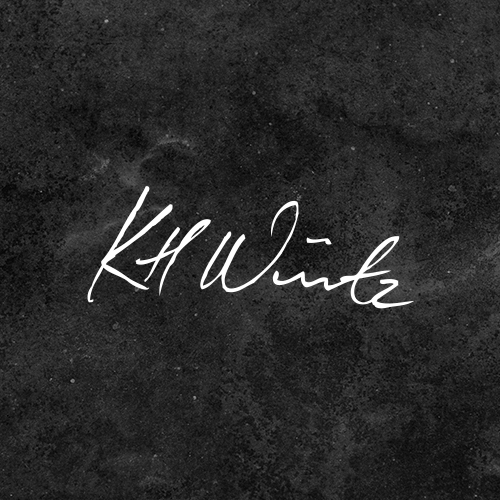 KH Würtz